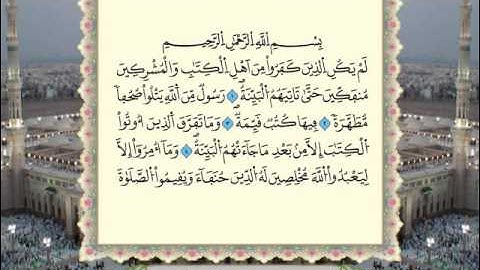 بِسْمِ اللَّهِ الرَّحْمَٰنِ الرَّحِيمِ
لَمْ يَكُنِ الَّذِينَ كَفَرُوا مِنْ أَهْلِ الْكِتَٰبِ وَالْمُشْرِكِينَ
مُنفَكِّينَ حَتَّىٰ تَأْتِيَهُمُ الْبَيِّنَةُ ١ رَسُولٌ مِّنَ اللَّهِ يَتْلُوا صُحُفًا
مُّطَهَّرَةً ٢ فِيهَا كُتُبٌ قَيِّمَةٌ ٣ وَمَا تَفَرَّقَ الَّذِينَ أُوتُوا
الْكِتَٰبَ إِلَّا مِن بَعْدِ مَا جَاءَتْهُمُ الْبَيِّنَةُ ٤ وَمَا أُمِرُوا إِلَّا
لِيَعْبُدُوا اللَّهَ مُخْلِصِينَ لَهُ الدِّينَ حُنَفَاءَ وَيُقِيمُوا الصَّلَوٰةَ